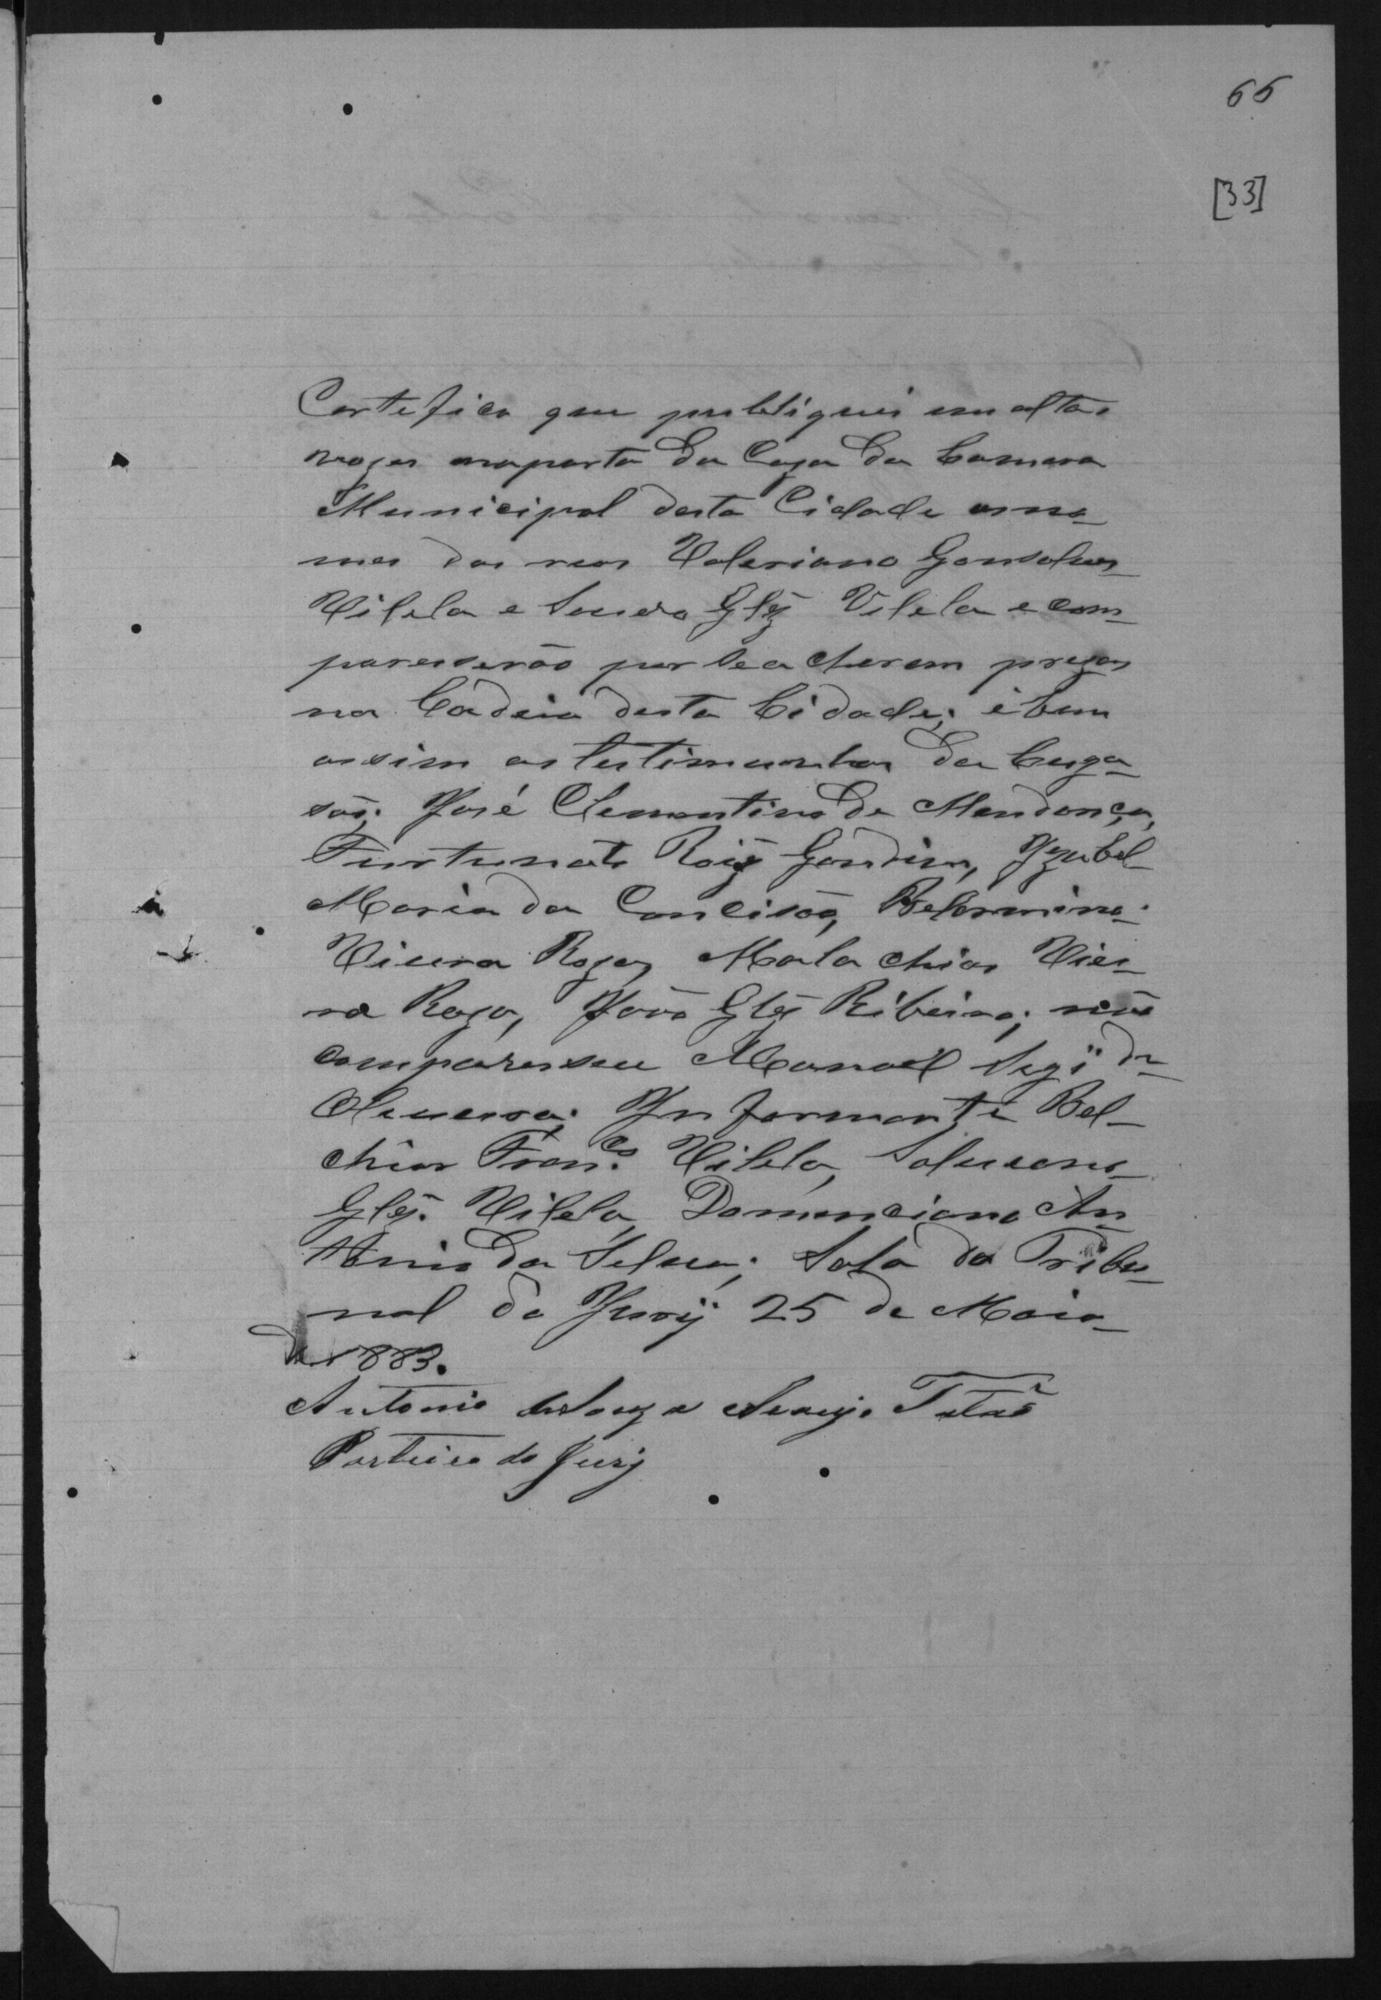 66
[33]
Certefico que publiquei em altas
vozes na porta da Caza da Camara
Municipal desta Cidade os no-
mes dos reos Valeriano Gonsalves
Vilela e Glz Vilela e com-
pareserão por se acharem prezos
na Cadeia desta Cidade; e bem
assim as testimunhas da Cuza-
são; José Clementino de Mendonça,
Furtunato Roiz Gondim, Yzabel
Maria da Conceisão, Belarmino
Vieira Rozo, Malachias Viei-
ra Rozo, João Glz Ribeiro; não
comparesseu Manoel de
Oliveira; Informante Bel-
chior Fran.co Vilela,
Glz. Vilela, Domenciano An-
tonio da Silva; Sala do Tribu-
nal do Jury 25 de Maio
de 1883.
Antonio de Souza Araujo
Porteiro do Jury